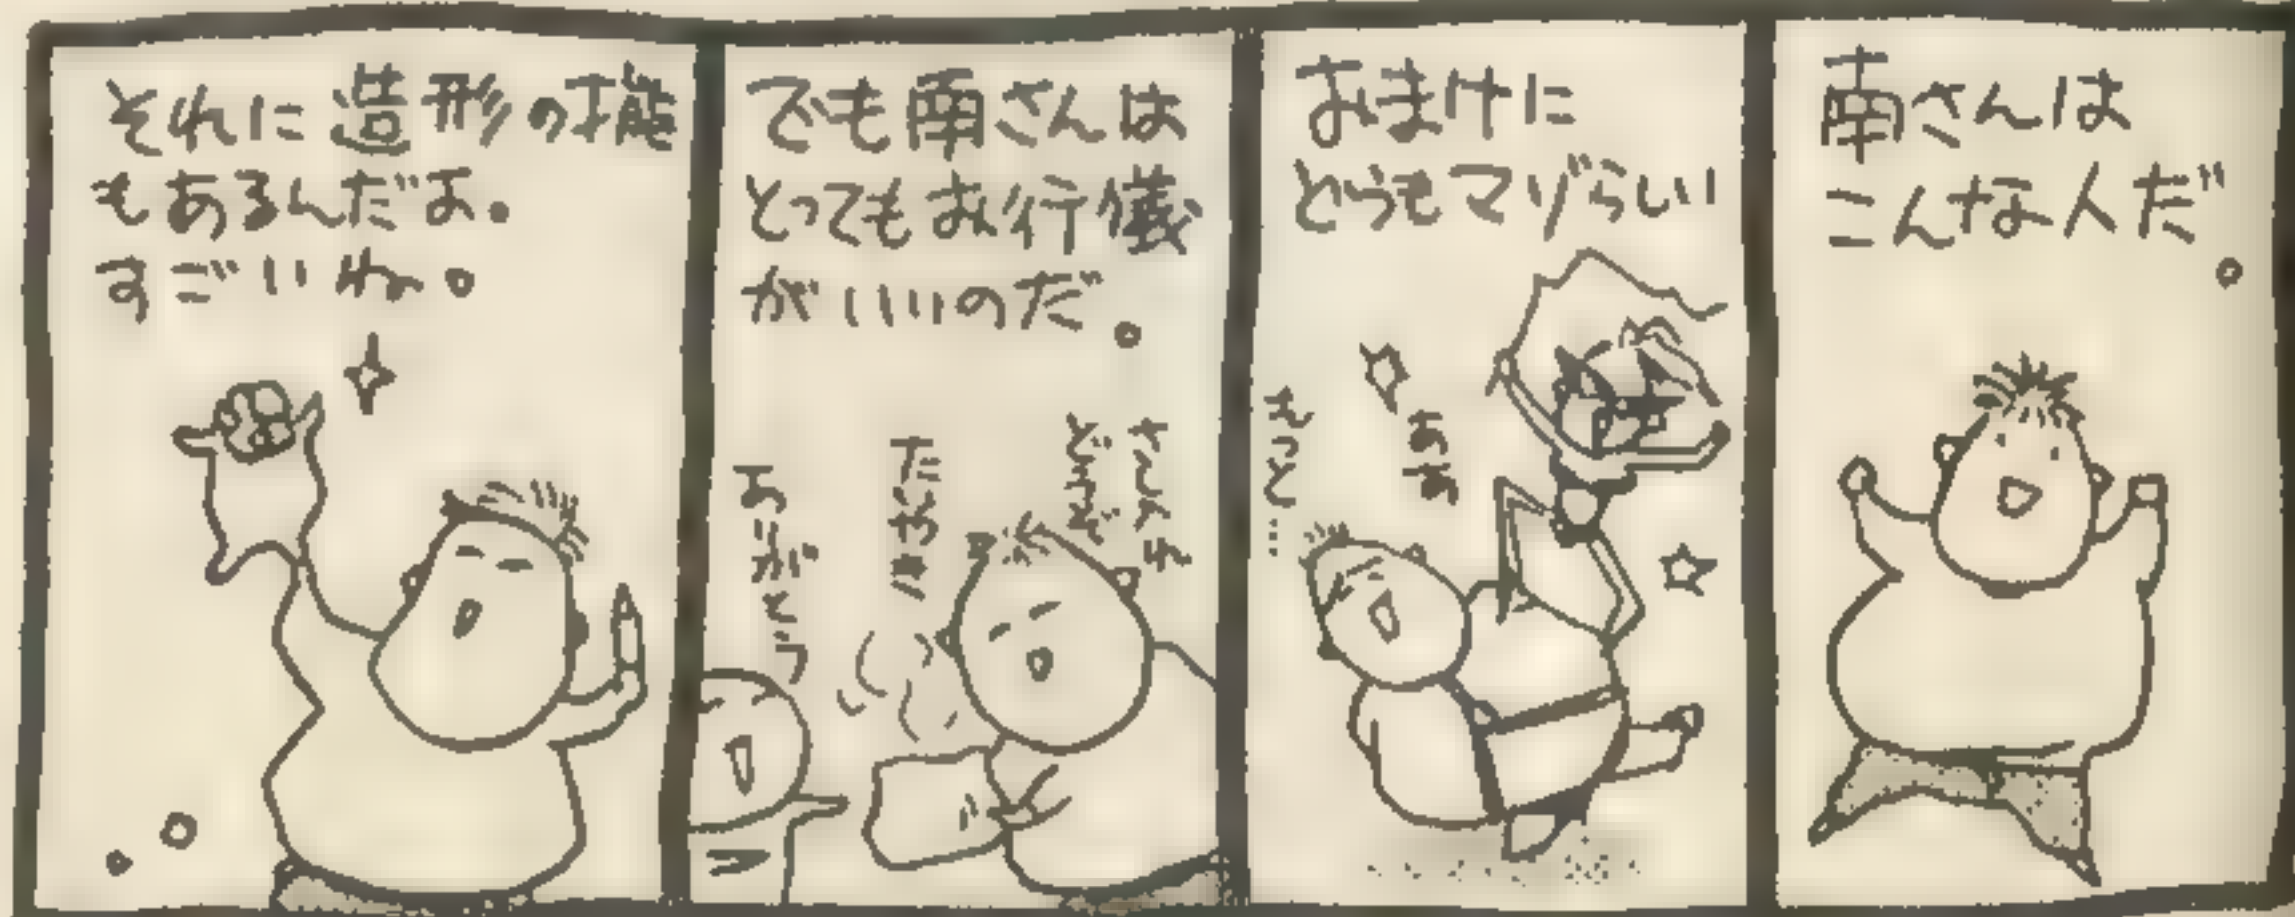 南さんは
こんな人だ。
おまけに
どうもマゾらしい
ああ
もっと…
でも南さんは
とってもお行儀
がいいのだ。
どうぞ
ありがとう
それに造形の才能
もあるんだよ。
すごいね。